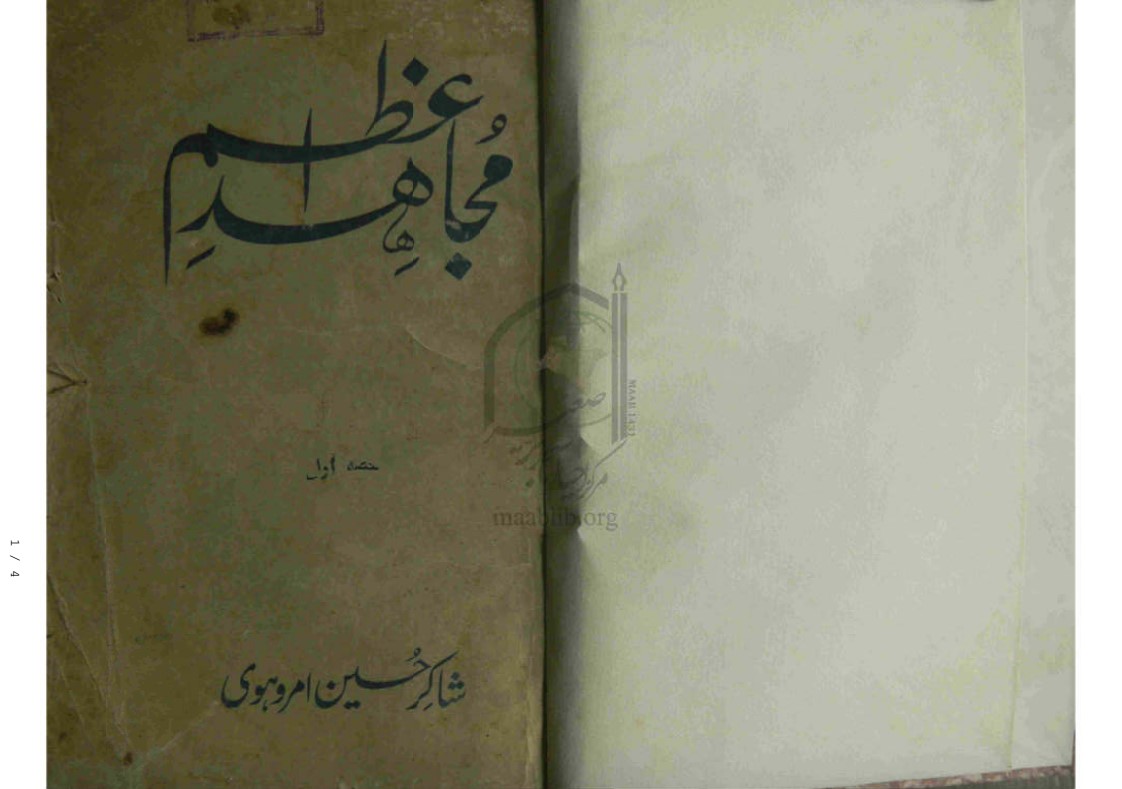 مُجاہدِ اعظم
حصہ اول
شاکر حُسین امروہوی
MAAB 1431
maablib.org
1 / 4